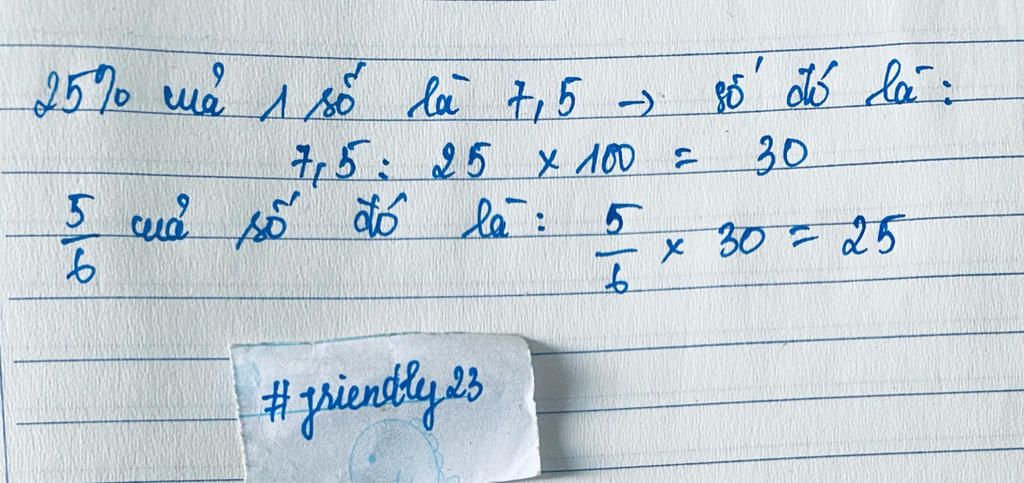 25% của 1 số là 7,5 → số đó là:
7,5 : 25 x 100 = 30
5/6 của số đó là: 5/6 x 30 = 25
#friendly23